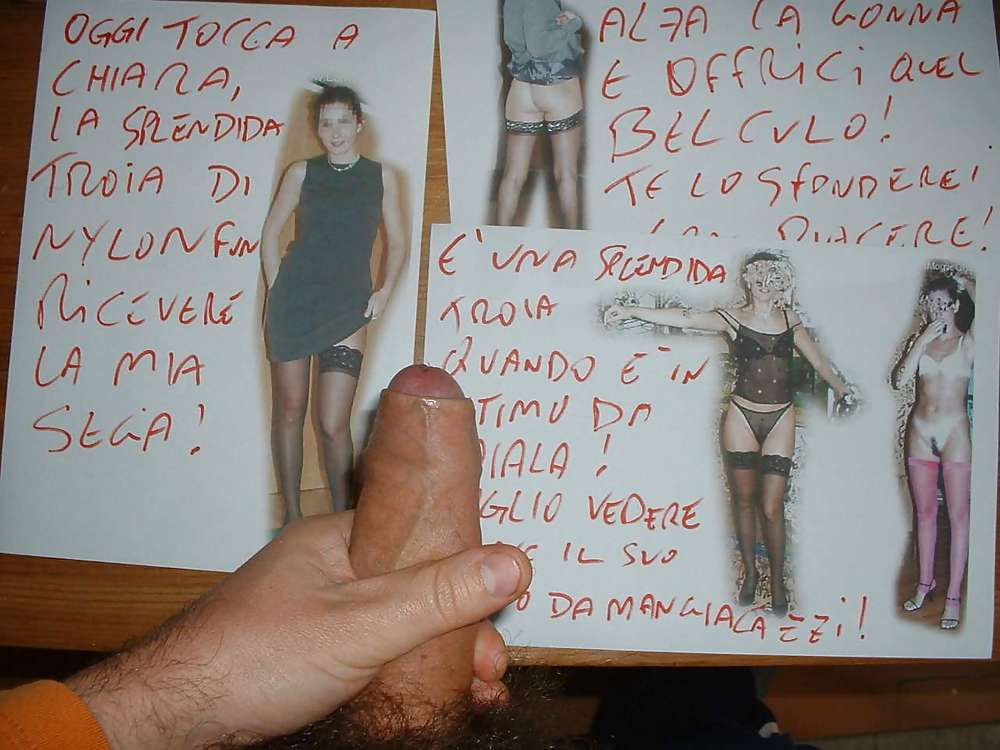 OGGI TOCCA A
CHIARA,
LA SPLENDIDA
TROIA DI
NYLONFUN
RICEVERE
LA MIA
SEGA!
ALZA LA GONNA
E OFFRICI QUEL
BEL CULO!
TE LO SFONDEREI
PIACERE!
E' UNA SPLENDIDA
TROIA
QUANDO E' IN
DA
VEDERE
IL SUO
DA MANGIACAZZI!